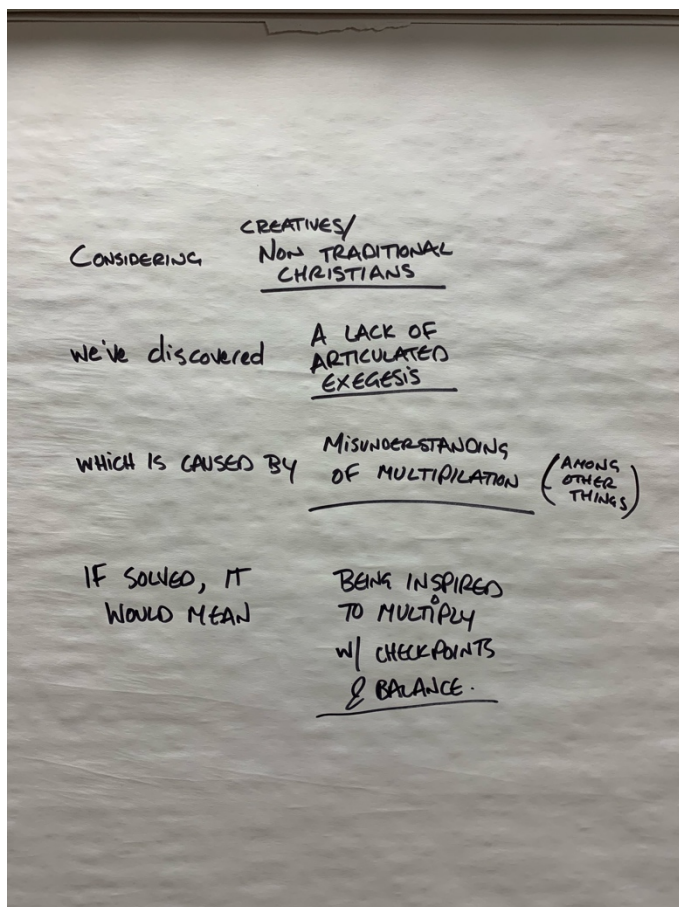 CREATIVES/
CONSIDERING NON TRADITIONAL
CHRISTIANS
we've discovered A LACK OF
ARTICULATED
EXEGESIS
WHICH IS CAUSED BY MISUNDERSTANDING
OF MULTIPILATION (AMONG
OTHER
THINGS)
IF SOLVED, IT BEING INSPIRED
WOULD MEAN TO MULTIPLY
W/ CHECKPOINTS
& BALANCE.